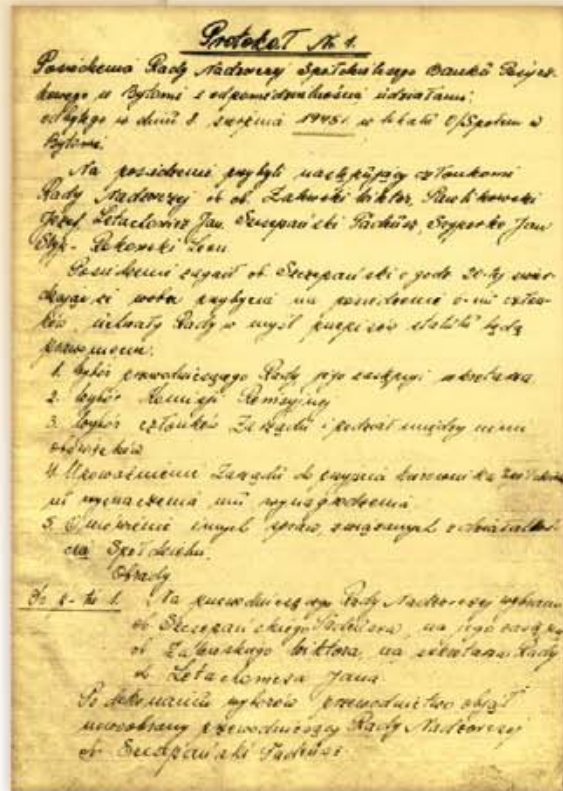 Protokół Nr 1.
Posiedzenia Rady Nadzorczej Spółdzielczego Banku Pożycz-
kowego w Bytomiu z odpowiedzialnością udziałami,
odbytego w dniu 8. sierpnia 1945 r. w lokalu O/Społem w
Bytomiu.
Na posiedzenie przybyli następujący członkowie
Rady Nadzorczej ob. ob. Zalewski Wiktor, Pawlikowski
Józef, Letachowicz Jan, Szczepański Tadeusz, Szyperko Jan
Rakowski Leon
Posiedzenie zagaił ob. Szczepański o godz. 20-tej
wobec przybycia na posiedzenie 6-ciu człon-
ków, uchwały Rady w myśl przepisów statutu będą
prawomocne.
1. Wybór przewodniczącego Rady jego zastępcy i sekretarza
2. Wybór Komisji Rewizyjnej
3. Wybór członków Zarządu i podział między nimi
obowiązków
4. Upoważnienie Zarządu do przyjęcia kierownika
wyznaczenia mu wynagrodzenia
5. Omówienie innych spraw, związanych z działalnoś-
cią Spółdzielni.
Obrady
Do p-tu 1. Na przewodniczącego Rady Nadzorczej wybrano
ob. Szczepańskiego Tadeusza, na jego zastępcę
ob. Zalewskiego Wiktora, na sekretarza Rady
ob. Letachowicza Jana.
Po dokonaniu wyborów przewodnictwo objął
nowoobrany przewodniczący Rady Nadzorczej
ob. Szczepański Tadeusz